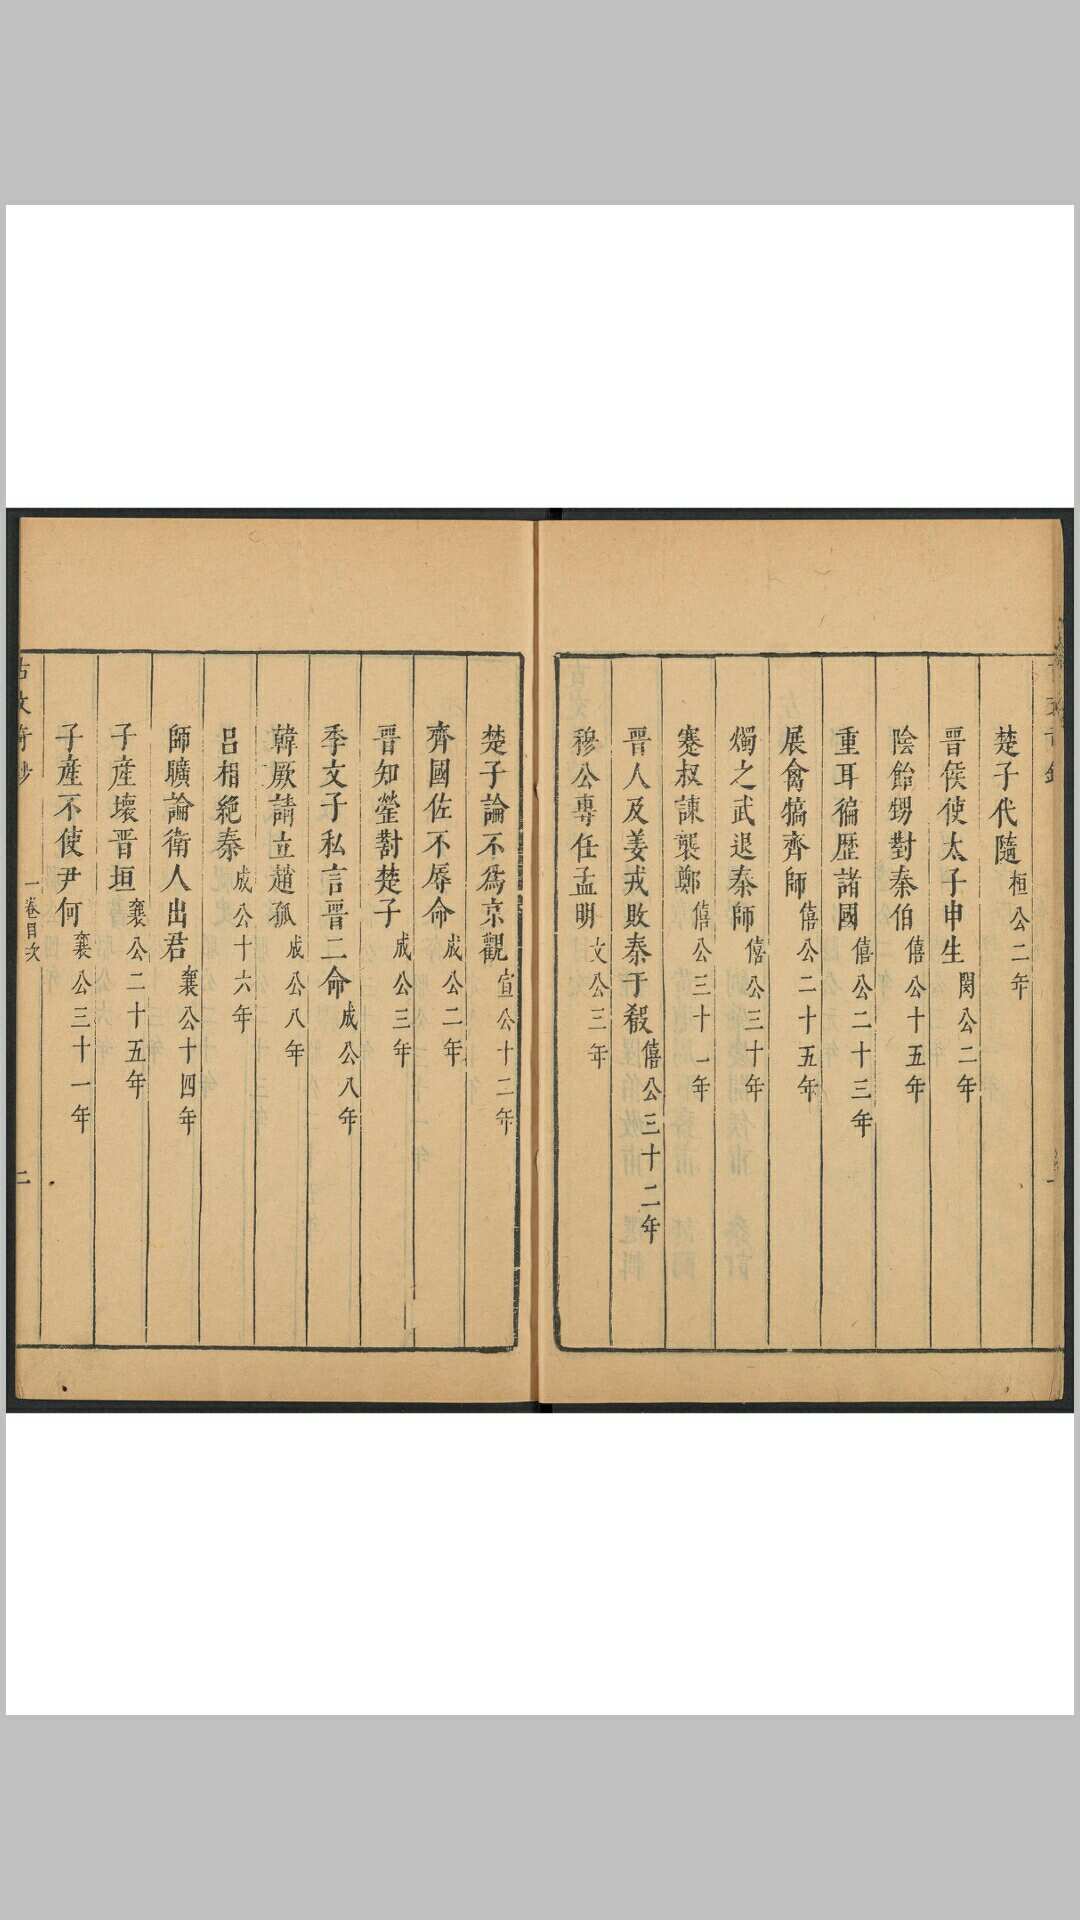 楚子代隨桓公二年
晋侯使太子申生閔公二年
陰飴甥對秦伯僖公十五年
重耳徧歴諸國僖公二十三年
展禽犒齊師僖公二十五年
燭之武退秦師僖公三十年
蹇叔諫襲鄭僖公三十一年
晋人及姜戎敗秦于殽僖公三十二年
穆公專任孟明文公三年
楚子論不爲京觀宣公十二年
齊國佐不辱命成公二年
晋知罃對楚子成公三年
季文子私言晋二命成公八年
韓厥請立趙孤成公八年
吕相絶秦成公十六年
師曠論衛人出君襄公十四年
子産壞晋垣襄公二十五年
子産不使尹何襄公三十一年
一卷目次 二